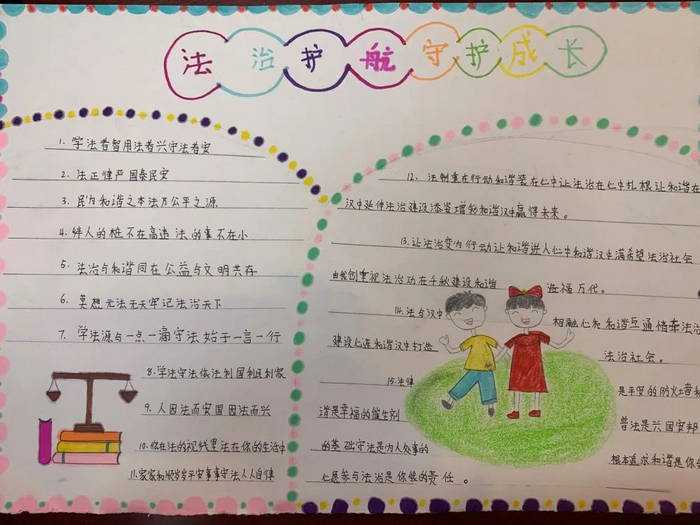 法治护航守护成长
1. 学法者智用法者兴守法者安
2. 法正律严国泰民安
3. 民为和谐之本法为公平之源
4. 绊人的桩不在高违法的事不在小
5. 法治与和谐同在公益与文明共存
6. 莫想无法无天牢记法治天下
7. 学法源与一点一滴守法始于一言一行
8. 学法守法依法利国利民利家
9. 人因法而安国因法而兴
10. 你在法的视线里法在你的生活中
11. 家家和顺岁岁平安事事守法人人自律
12. 法制重在行动和谐装在心中让法治在心中扎根让和谐在
汉中延伸法治建设添姿增彩和谐汉中赢得未来。
13. 让法治变为行动让和谐进入心中和谐汉中满希望法治社会
功在千秋建设和谐 造福万代。
14. 法与汉中 相融心和和谐互通情牵法治
建设心连和谐汉中打造 法治社会。
15. 法律 是平安的防火墙和
谐是幸福的催生剂 普法是兴国安邦
的基础守法是为人处事的 根本追求和谐是你
心愿参与法治是你我的责任。